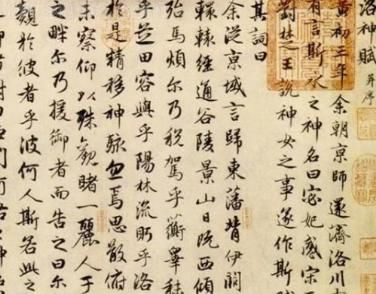 洛神賦 并序
黃初三年余朝京師還濟洛川古
有言斯水之神名曰宓妃感宋
對楚王說神女之事遂作斯賦
其詞曰
余從京域言歸東藩背伊闕
轘轅經通谷陵景山日既西傾
殆馬煩爾乃稅駕乎蘅皋秣
乎芝田容與乎陽林流眄乎洛
於是精移神駭忽焉思散俯
未察仰以殊觀睹一麗人于
之畔爾乃援御者而告之曰爾
覿於彼者乎彼何人斯若此之